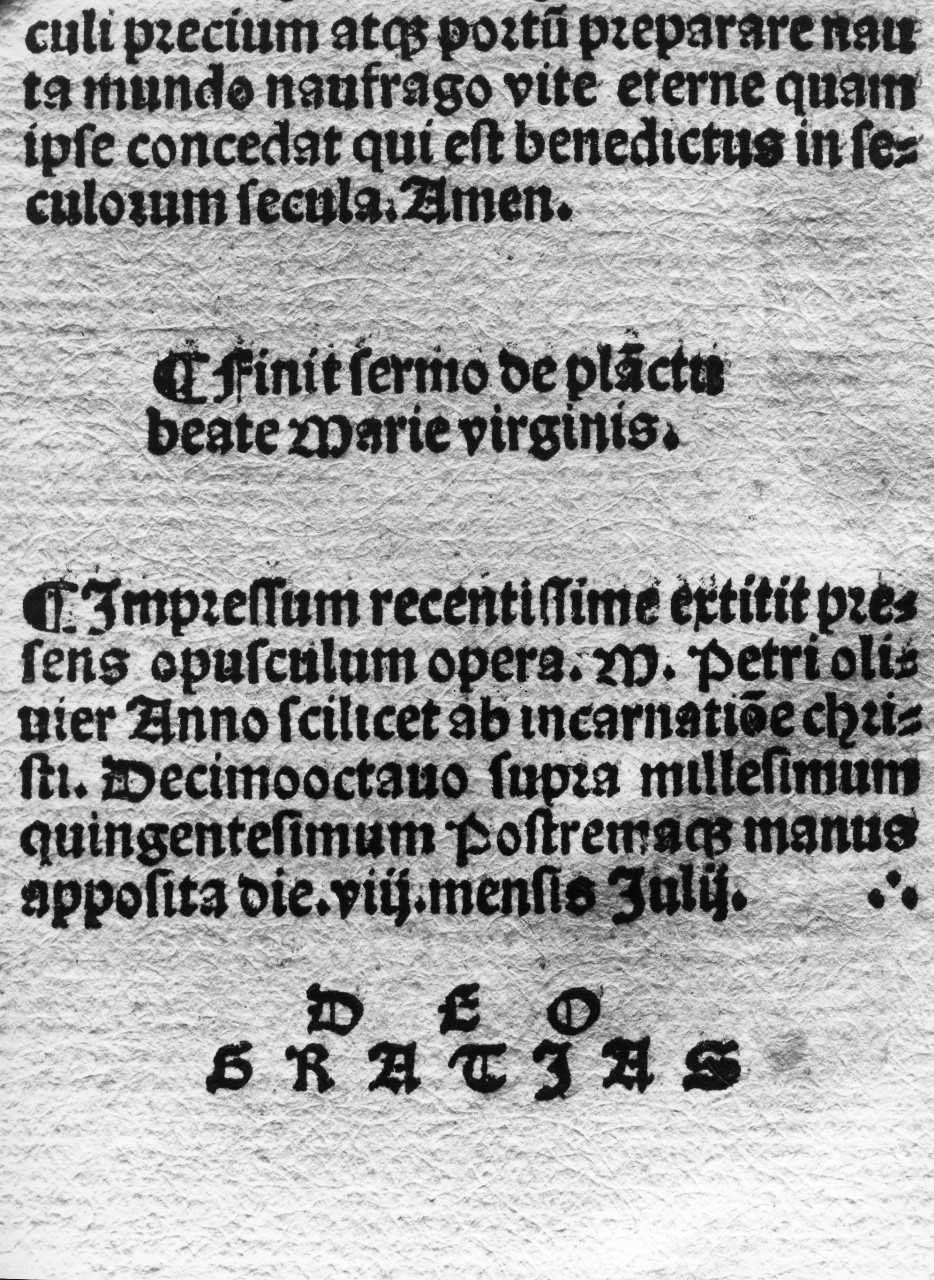 culi precium atqꝫ portū preparare nau
ta mundo naufrago vite eterne quam
ipſe concedat qui eſt benedictus in ſe⸗
culorum ſecula. Amen.
¶ Finit ſermo de plāctu
beate Marie virginis.
¶ Impreſſum recentiſſime extitit pre⸗
ſens opuſculum opera. M. Petri oli⸗
uier Anno ſcilicet ab incarnatiōe chri⸗
ſti. Decimooctauo ſupra milleſimum
quingenteſimum Poſtremaqꝫ manus
appoſita die.viij.menſis Julij. ∴
D E O
G R A T I A S